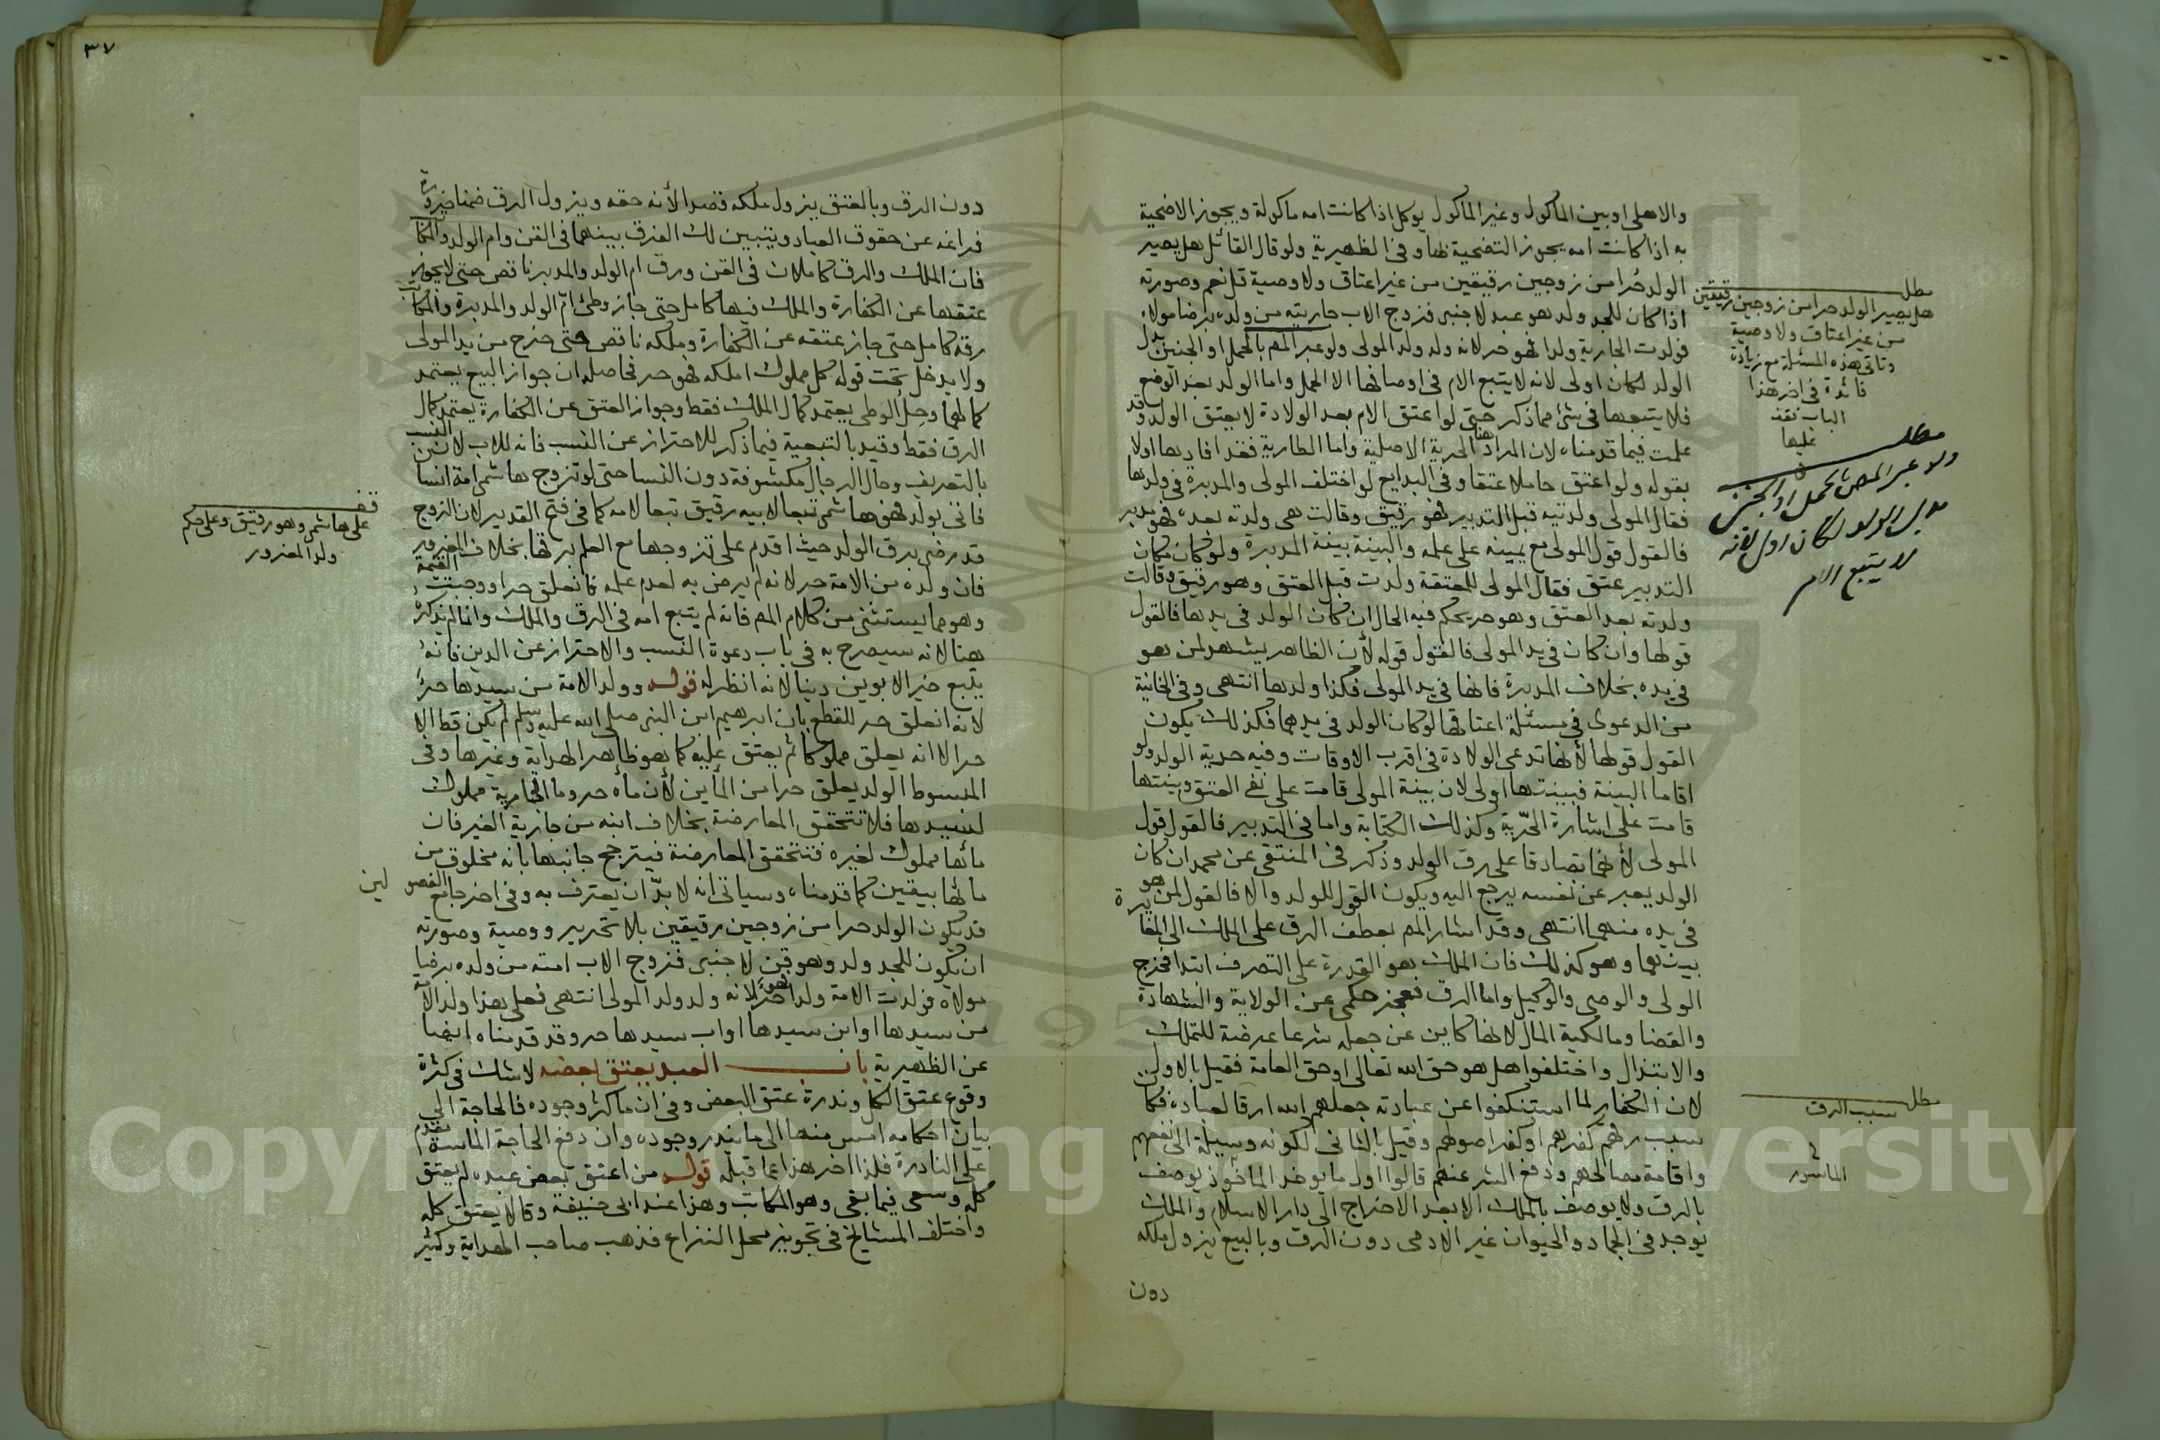 والاهلى او بين الماكول وغير الماكول يوكل اذا كانت امه ماكولة ويجوز الاضحية
به اذا كانت امه يجوز التضحية بها وفى الظهيرية ولو قال القائل هل يصير
الولد حرا من زوجين رقيقين من غير اعتاق ولا وصية قل نعم وصورته
اذا كان للحد ولد هو عبد لاجنبى فزوج الاب جاريته من ولده برضا مولاه
فولدت الجارية ولدا فهو حر لانه ولد ولد المولى ولو عبر المص بالحمل او الجنين بدل
الولد لكان اولى لانه لا يتبع الام فى اوصافها الا الحمل واما الولد بعد الوضع
فلا يتبعها فى شئ مما ذكر حتى لو اعتق الام بعد الولادة لا يعتق الولد وقد
علمت فيما قدمناه لان المراد هنا الحرية الاصلية واما الطارية فقد افادها اولا
بقوله ولو اعتق حاملا عتقا وفى البدايع لو اختلف المولى والمدبرة فى ولدها
فقال المولى ولدتيه قبل التدبير فهو رقيق وقالت هى ولدته بعده فهو مدبر
فالقول قول المولى مع يمينه على علمه والبينة بينة المدبرة ولو كان مكان
التدبير عتق فقال المولى للمعتقة ولدت قبل العتق وهو رقيق وقالت
ولدته بعد العتق وهو حر يحكم فيه الحال ان كان الولد فى يدها فالقول
قولها وان كان فى يد المولى فالقول قوله لأن الظاهر يشهد لمن هو
فى يده بخلاف المدبرة فانها فى يد المولى فكذا ولدها انتهى وفى الخانية
من الدعوى فى مسئلة اعتاقها لو كان الولد فى يدهما فكذلك يكون
القول قولها لأنها تدعى الولادة فى اقرب الاوقات وفيه حرية الولد ولو
اقاما البينة فبينتها اولى لان بينة المولى قامت على نفى العتق وبينتها
قامت على اثبات الحرية وكذلك الكتابة واما فى التدبير فالقول قول
المولى لأنهما تصادقا على رق الولد وذكر فى المنتقى عن محمد ان كان
الولد يعبر عن نفسه يرجع اليه ويكون القول للولد والا فالقول لمن هو
فى يده منهما انتهى وقد اشار المص بعطف الرق على الملك الى المغايرة
بينهما وهو كذلك فان الملك هو القدرة على التصرف ابتدا فخرج
الولى والوصى والوكيل واما الرق فعجز حكمى عن الولاية والشهادة
والقضا ومالكية المال لانها كاين عن جعله شرعا عرضة للتملك
والابتذال واختلفوا هل هو حق الله تعالى او حق العامة فقيل بالاول
لان الكفار لما استنكفوا عن عبادته جعلهم الله ارقا لعباده فكان
سبب رقهم كفرهم او كفر اصولهم وقيل بالثانى لكونه وسيلة الى نفعهم
واقامة مصالحهم ودفع الشر عنهم قالوا اول ما يوخذ الماخوذ يوصف
بالرق ولا يوصف بالملك الا بعد الاخراج الى دار الاسلام والملك
يوجد فى الجماد والحيوان غير الادمى دون الرق وبالبيع يزول ملكه
دون
مطلب
هل يصير الولد حرا من زوجين رقيقين
من غير اعتاق ولا وصية
وتاتى هذه المسئلة مع زيادة
فائدة فى اخر هذا
الباب
عليها
مطلب
ولو عبر المص بالحمل او الجنين
بدل الولد لكان اولى لانه
لا يتبع الام
مطلب
سبب الرق
٣٧
دون الرق وبالعتق يزول ملكه قصدا لأنه حقه ويزول الرق ضمنا ضرورة
فراغه عن حقوق العباد ويتبين لك الفرق بينهما فى القن وام الولد والمكاتب
فان الملك والرق كاملان فى القن ورق ام الولد والمدبر ناقص حتى لا يجوز
عتقهما عن الكفارة والملك فيها كامل حتى جاز وطئ ام الولد والمدبرة والمكاتب
رقه كامل حتى جاز عتقه عن الكفارة وملكه ناقص حتى خرج من يد المولى
ولا يدخل تحت قوله كل مملوك املكه فهو حر فحاصله ان جواز البيع يعتمد
كمالهما وحل الوطى يعتمد كمال الملك فقط وجواز العتق عن الكفارة يعتمد كمال
الرق فقط وقيد بالتبعية فيما ذكر للاحتراز عن النسب فانه للاب لان النسب
بالتعريف وحال الرجال مكشوفة دون النسا حتى لو تزوج هاشمى امة انسان
فاتى بولد فهو هاشمى تبعا لابيه رقيق تبعا لامه كما فى فتح القدير لان الزوج
قد رضى برق الولد حيث اقدم على تزوجها مع العلم برقها بخلاف المغرور
فان ولده من الامة حر لانه لم يرض به لعدم علمه فانعلق حرا ووجبت القيمة
وهو مما يستثنى من كلام المص فانه لم يتبع امه فى الرق والملك وانما لم يذكره
هنا لانه سيصرح به فى باب دعوة النسب والاحتراز عن الدين فانه
يتبع خير الابوين دينا لانه انظر له قوله وولد الامة من سيدها حر
لانه انعلق حر للقطع بان ابرهيم ابن النبى صلى الله عليه وسلم لم يكن قط الا
حر الا انه يعلق مملوكا ثم يعتق عليه كما هو ظاهر الهداية وغيرها وفى
المبسوط الولد يعلق حرا من المأين لأن مأه حر وما الجارية مملوك
لسيدها فلا تتحقق المعارضة بخلاف ابنه من جارية الغير فان
مائها مملوك لغيره فتتحقق المعارضة فيترجح جانبها بانه مخلوق من
مائها بيقين كما قدمناه وسياتى انه لا بد ان يعترف به وفى اخر جامع الفصولين
قد يكون الولد حرا من زوجين رقيقين بلا تحرير ووصية وصورته
ان يكون للحر ولد وهو قن لاجنبى فزوج الاب امته من ولده برضا
مولاه فولدت الامة ولدا فهو حر لانه ولد ولد المولى انتهى فعلى هذا ولد الامة
من سيدها او ابن سيدها او اب سيدها حر وقد قدمناه ايضا
عن الظهيرية باب العبد يعتق بعضه لا شك فى كثرة
وقوع عتق الكل وندرة عتق البعض وفى ان ما كثر وجوده فالحاجة الى
بيان احكامه امس منها الى ما يندر وجوده وان دفع الحاجة الماسة تقدم
على النادرة فلذا اخر هذا عما قبله قوله من اعتق بعض عبده لم يعتق
كله وسعى فيما بقى وهو المكاتب وهذا عند ابى حنيفة وقالا يعتق كله
واختلف المشايخ فى تجويز محل النزاع فذهب صاحب الهداية وكثير
على هاشمى وهو رقيق وعلى حكم
ولد المغرور